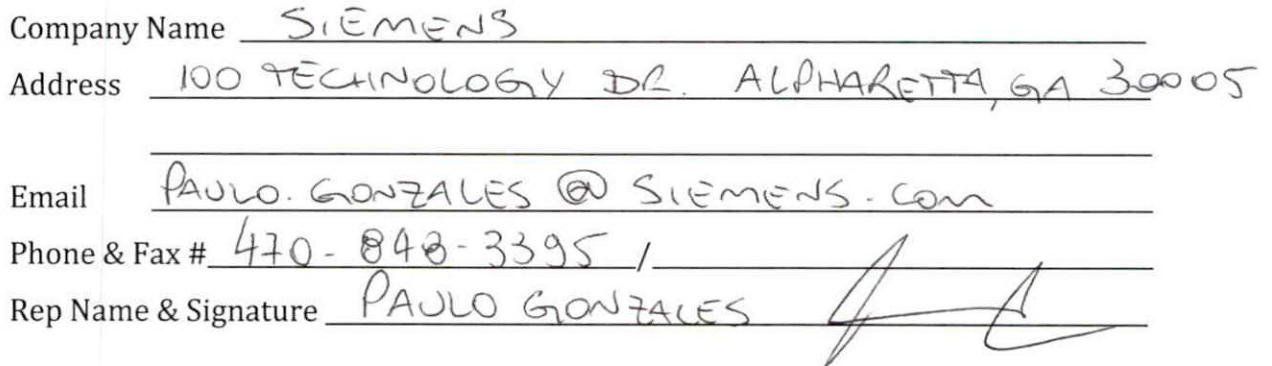 Company Name SIEMENS
Address 100 TECHNOLOGY DR. ALPHARETTA, GA 30005
Email PAULO.GONZALES@SIEMENS.com
Phone & Fax # 470-848-3395 /
Rep Name & Signature PAULO GONZALES